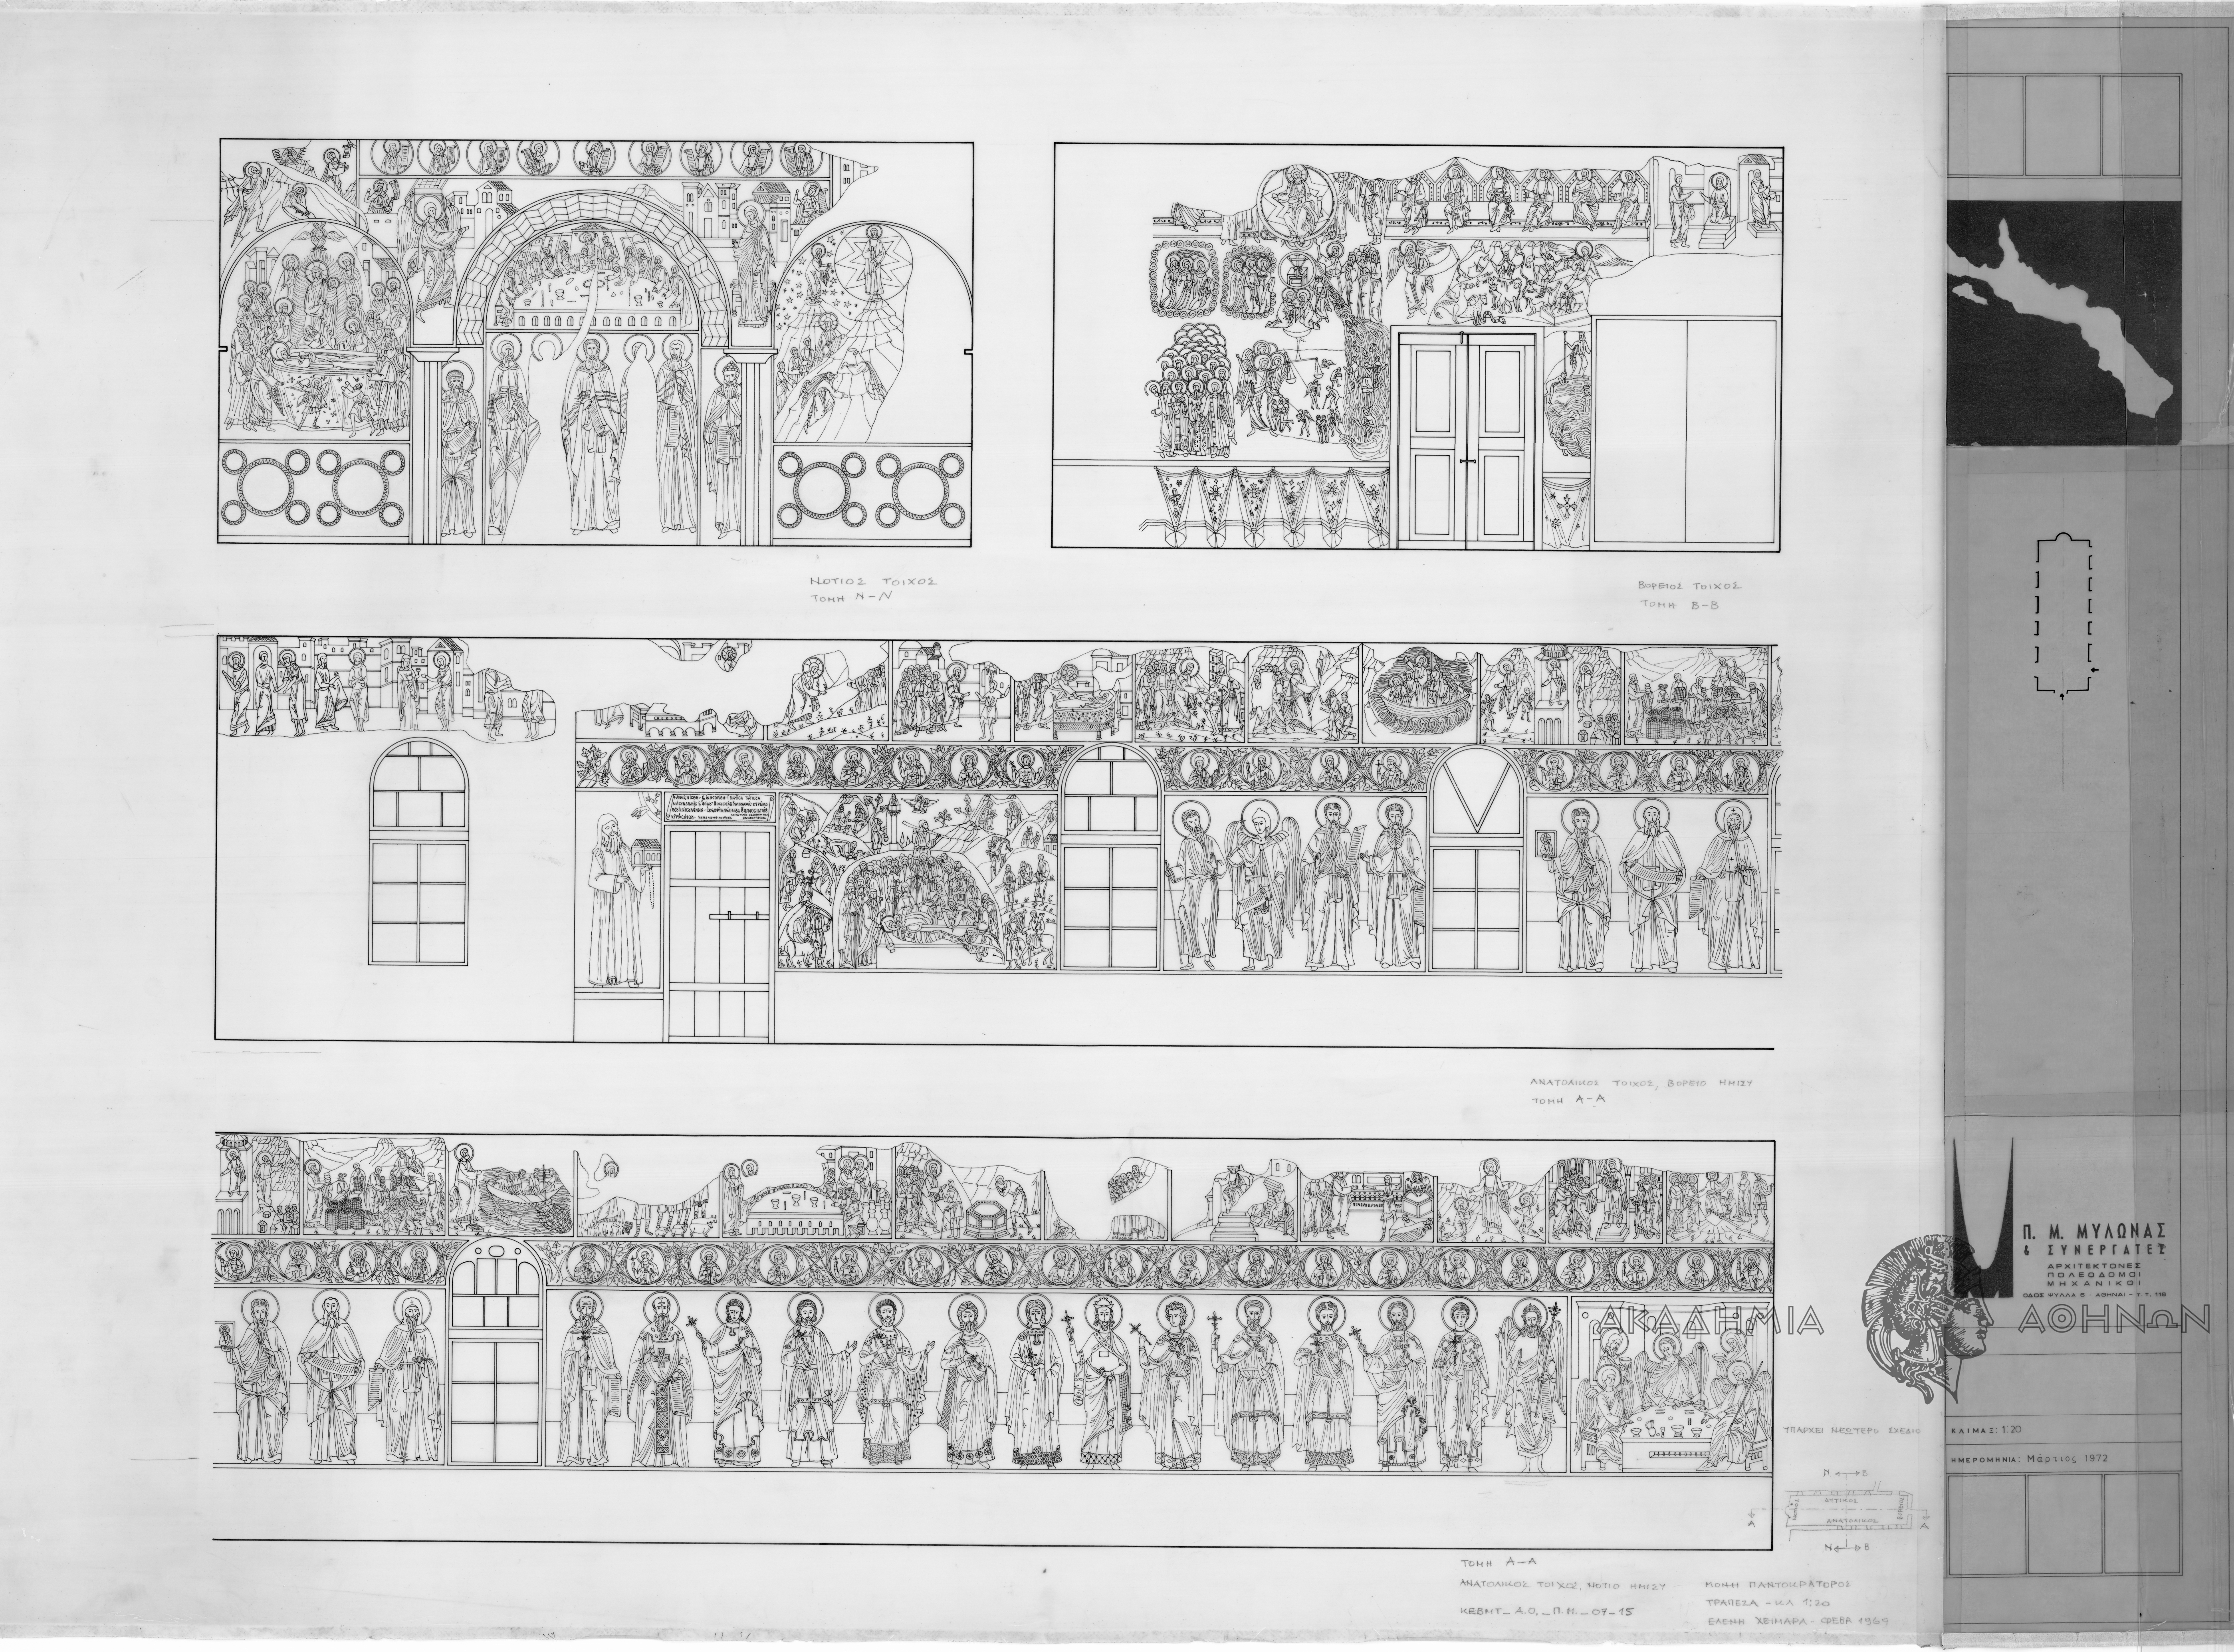 ΝΟΤΙΟΣ ΤΟΙΧΟΣ
ΤΟΜΗ Ν-Ν
ΒΟΡΕΙΟΣ ΤΟΙΧΟΣ
ΤΟΜΗ Β-Β
ΑΝΑΤΟΛΙΚΟΣ ΤΟΙΧΟΣ, ΒΟΡΕΙΟ ΗΜΙΣΥ
ΤΟΜΗ Α-Α
Π. Μ. ΜΥΛΩΝΑΣ
& ΣΥΝΕΡΓΑΤΕΣ
ΑΡΧΙΤΕΚΤΟΝΕΣ
ΠΟΛΕΟΔΟΜΟΙ
ΜΗΧΑΝΙΚΟΙ
ΟΔΟΣ ΨΥΛΛΑ 8 - ΑΘΗΝΑΙ - Τ.Τ. 118
ΑΚΑΔΗΜΙΑ ΑΘΗΝΩΝ
ΥΠΑΡΧΕΙ ΝΕΩΤΕΡΟ ΣΧΕΔΙΟ
ΚΛΙΜΑΞ: 1:20
ΗΜΕΡΟΜΗΝΙΑ: Μάρτιος 1972
Ν Β
ΔΥΤΙΚΟΣ
ΑΝΑΤΟΛΙΚΟΣ
Α Α
Ν Β
ΤΟΜΗ Α-Α
ΑΝΑΤΟΛΙΚΟΣ ΤΟΙΧΟΣ, ΝΟΤΙΟ ΗΜΙΣΥ
ΚΕΒΜΤ_Α.Ο._Π.Η._07-15
ΜΟΝΗ ΠΑΝΤΟΚΡΑΤΟΡΟΣ
ΤΡΑΠΕΖΑ - ΚΛ 1:20
ΕΛΕΝΗ ΧΕΙΜΑΡΑ - ΦΕΒΡ 1969